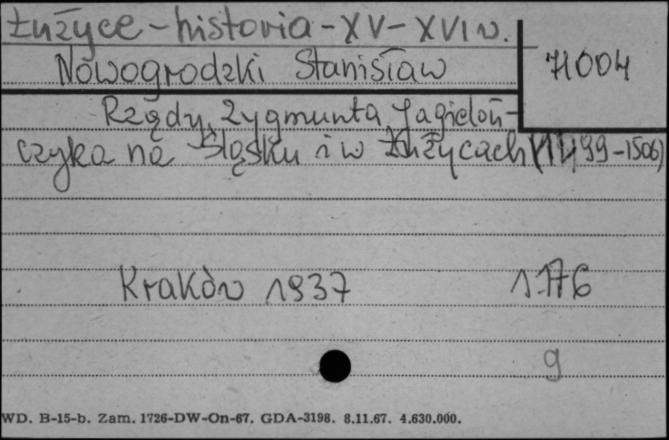 Łużyce - historia - XV - XVI w.
Nowogrodzki Stanisław
71004
Rządy Zygmunta Jagielloń-
czyka na Śląsku i w Łużycach (1499-1506)
Kraków 1937
1.176
g
WD. B-15-b. Zam. 1726-DW-On-67. GDA-3198. 8.11.67. 4.630.000.